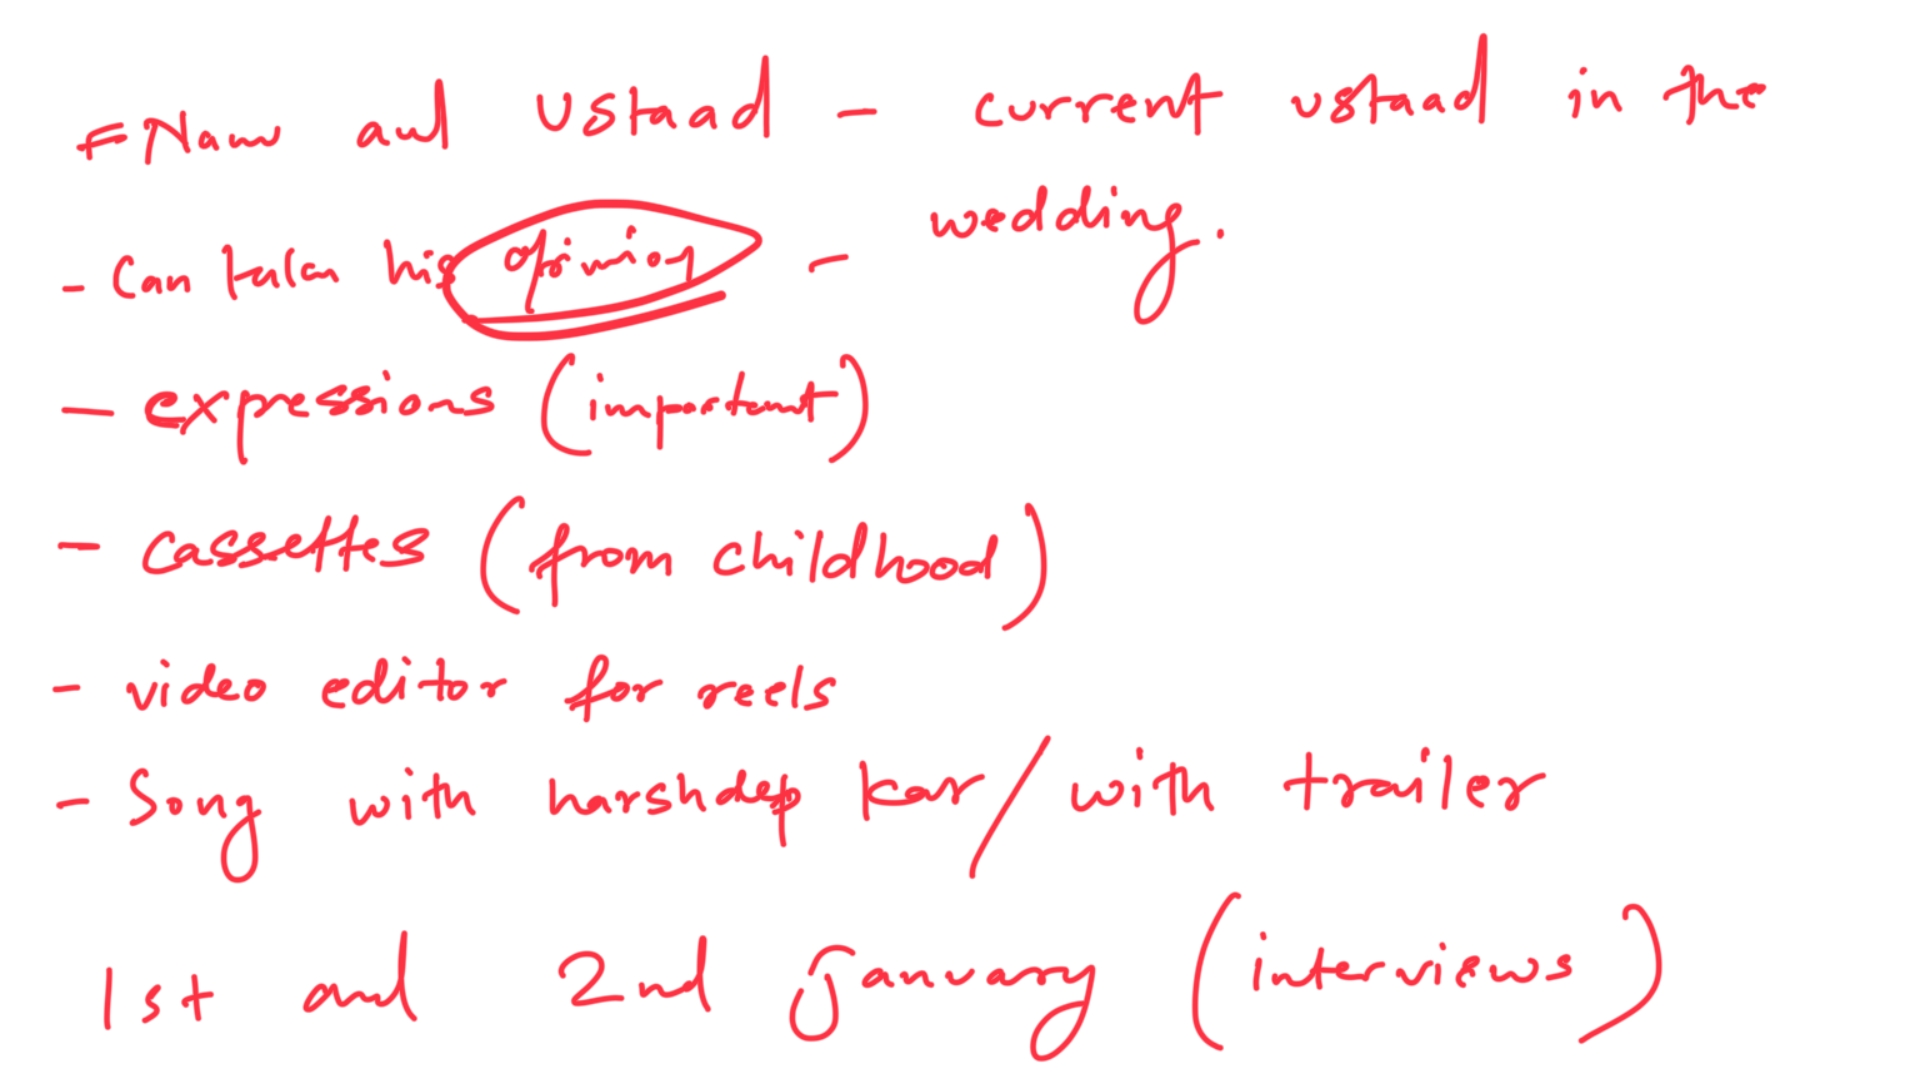 - Nam and Ustaad - current ustaad in the
wedding.
- Can taken his opinion -
- expressions (important)
- cassettes (from childhood)
- video editor for reels
- Song with harshdep kar/with trailer
1st and 2nd january (interviews)